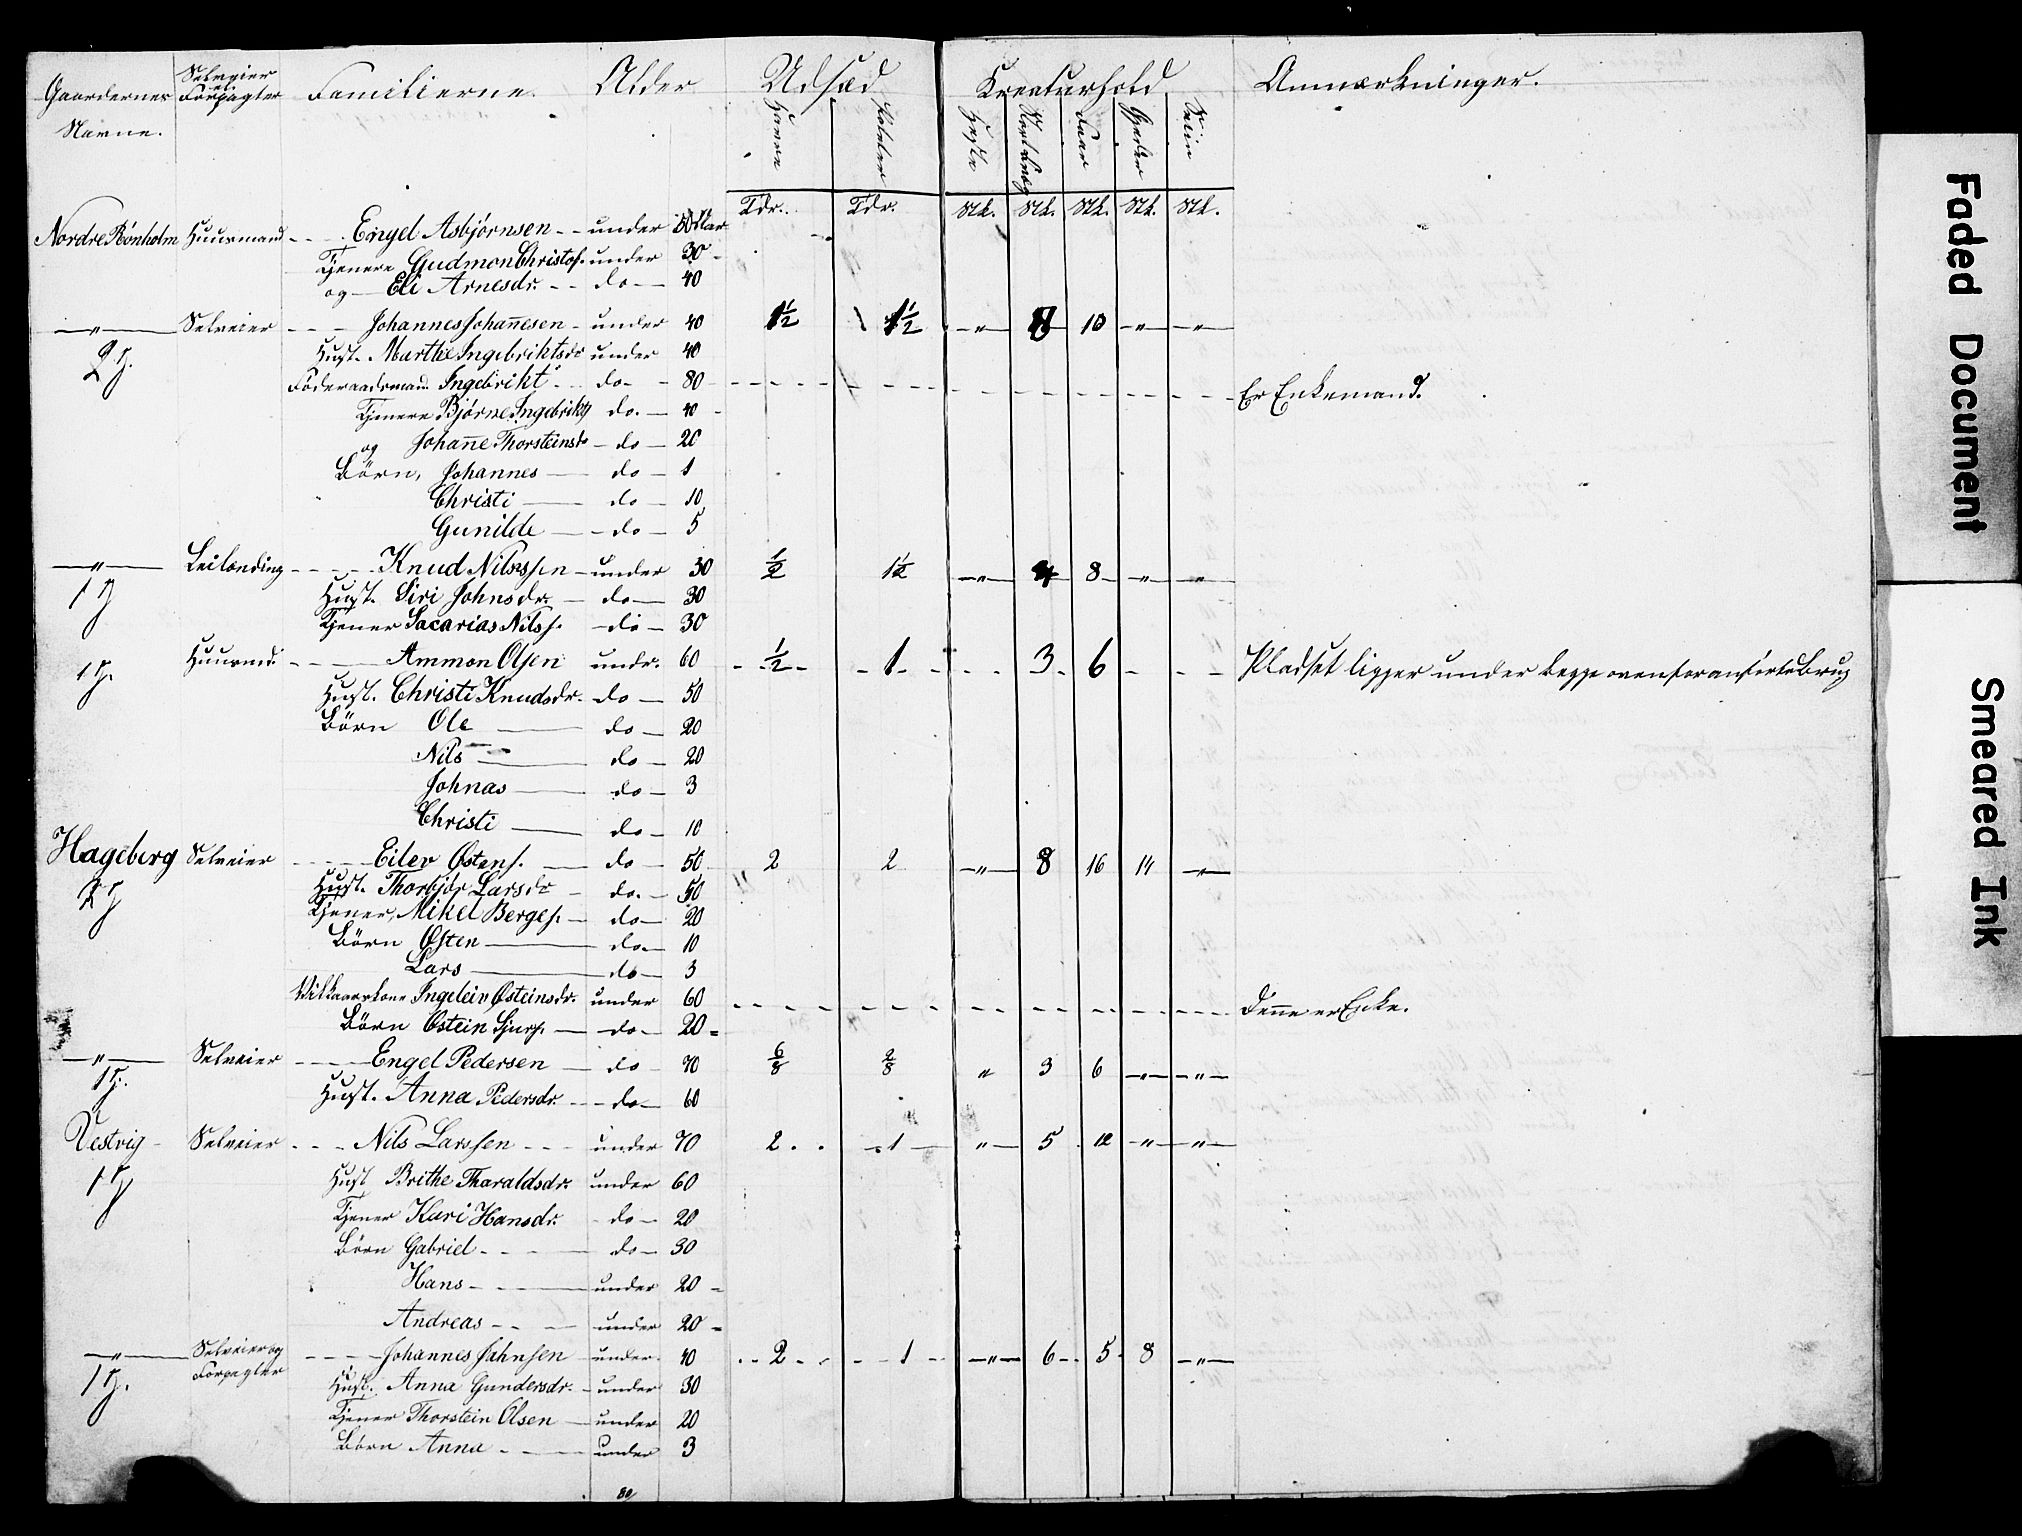 Gaardernes Navne. Selveier el. Forpagter Familierne. Alder Udsæd Kreaturhold Anmærkninger.
Havre Poteter Heste Stort Qvæg Faar Gjeder Sviin
Tdr. Tdr. Stk. Stk. Stk. Stk. Stk.
Nordre Rønholm Huusmand - - - Engel Asbjørnsen - - under 50 Aar
Tjenere Gudmon Christof. under 30 -
og — Eli Arnesdr. - - do — 40
—„— Selveier - - - Johannes Johan̄esen - under 40 1½ 1½ —„— 8 10 —„— —„—
2 H. Hust. Marthe Ingebriktsdr under 40
Føderaadsmand Ingebrikt - - do - - 80 Er Enkemand.
Tjenere Bjørne Ingebrikts do. — 40 -
og Johan̄e Thorsteinsdr — do — 20
Børn, Johannes — do — 1
Christi — do — 10
Gunilde — do — 5
—„— Leilænding - - - Knud Nilssen — under 30 ½ 1½ —„— 4 8 —„— —„—
1 H Hust. Siri Johnsdr. — do — 30
Tjener Sacarias Nilss. — do — 30
Huusmd. - - - Ammon Olsen undr. 60 - ½ - - 1 - - - 3 - 6 - - - Pladset ligger under begge ovenforanførte brug
1 H. Hust. Christi Knudsdr. - do — 50
Børn Ole — do — 20
Nils — do — 20
Johnas — do — 3
Christi — do — 10
Hageberg Selveier - - - Eilev Østens. — do — 50 2 2 —„— 8 16 14 —„—
2 H Hust. Thorbjør Larsdr — do. — 50
Tjener, Mikel Berges. — do — 20
Børn Østen — do — 10
Lars — do — 3
Vilkaarskone Ingeleiv Østeinsdr. under 60 Den̄e er Enke.
Børn Østein Sjurs. — do — 20 -
—„— Selveier - - - Engel Pedersen — do — 70 6/8 2/8 „ 3 6 —„— —„—
1 H. Hust. Anna Pedersdr. - - do — 60
Vestvig - Selveier - - - Nils Larssen - - - under 70 2 - - - 1 — „ — 5 12 —„— —„—
1 H Hust Brithe Tharaldsdr. under 60
Tjener Kari Hansdr. - do — 20
Børn Gabriel - - - — do — 30
Hans - - — under 20 -
Andreas - - — under 20 -
—„— Selveier og Forpagter - - - Johannes Johnsen — under 40 - - 2 - - - - 1 - —„— 6 - 5 - 8 —„—
1 H. Hust. Anna Gundersdr. — under 30
Tjener Thorstein Olsen — under 20
Børn Anna - - — under 3
80
Faded Document
Smeared Ink